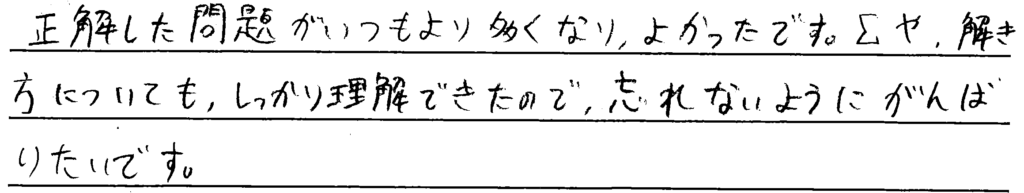 正解した問題がいつもより多くなり,よかったです。Σや,解き
方についても,しっかり理解できたので,忘れないようにがんば
りたいです。